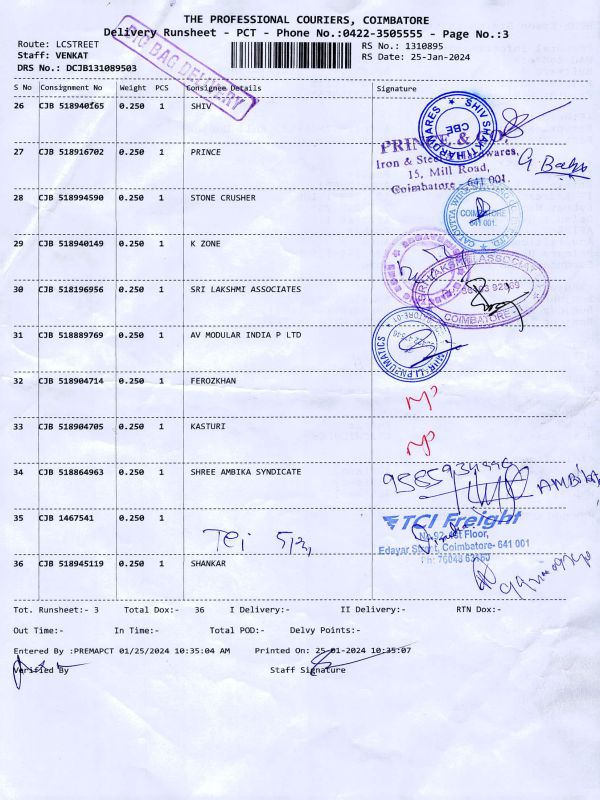 THE PROFESSIONAL COURIERS, COIMBATORE
Delivery Runsheet - PCT - Phone No.:0422-3505555 - Page No.:3
Route: LCSTREET
RS No.: 1310895
Staff: VENKAT
RS Date: 25-Jan-2024
DRS No.: DCJB131089503
BAG DELIVERY
S No Consignment No Weight PCS Consignee Details Signature
26 CJB 518940165 0.250 1 SHIV
SHIV SHAKTHI HARDWARES
CBE
27 CJB 518916702 0.250 1 PRINCE
PRINCE & CO.
Iron & Steel, Hardwares,
15, Mill Road,
Coimbatore - 641 001.
G. Babu
28 CJB 518994590 0.250 1 STONE CRUSHER
COIMBATORE
641 001.
29 CJB 518940149 0.250 1 K ZONE
30 CJB 518196956 0.250 1 SRI LAKSHMI ASSOCIATES
COIMBATORE-1
31 CJB 518889769 0.250 1 AV MODULAR INDIA P LTD
PNEUMATICS
32 CJB 518904714 0.250 1 FEROZKHAN
NP
33 CJB 518904705 0.250 1 KASTURI
NP
34 CJB 518864963 0.250 1 SHREE AMBIKA SYNDICATE
AMBIKA
35 CJB 1467541 0.250 1
TCI
TCI Freight
No.92, 1st Floor,
Edayar Street, Coimbatore- 641 001
36 CJB 518945119 0.250 1 SHANKAR
Tot. Runsheet:- 3 Total Dox:- 36 I Delivery:- II Delivery:- RTN Dox:-
Out Time:- In Time:- Total POD:- Delvy Points:-
Entered By :PREMAPCT 01/25/2024 10:35:04 AM Printed On: 25-01-2024 10:35:07
Verified By Staff Signature